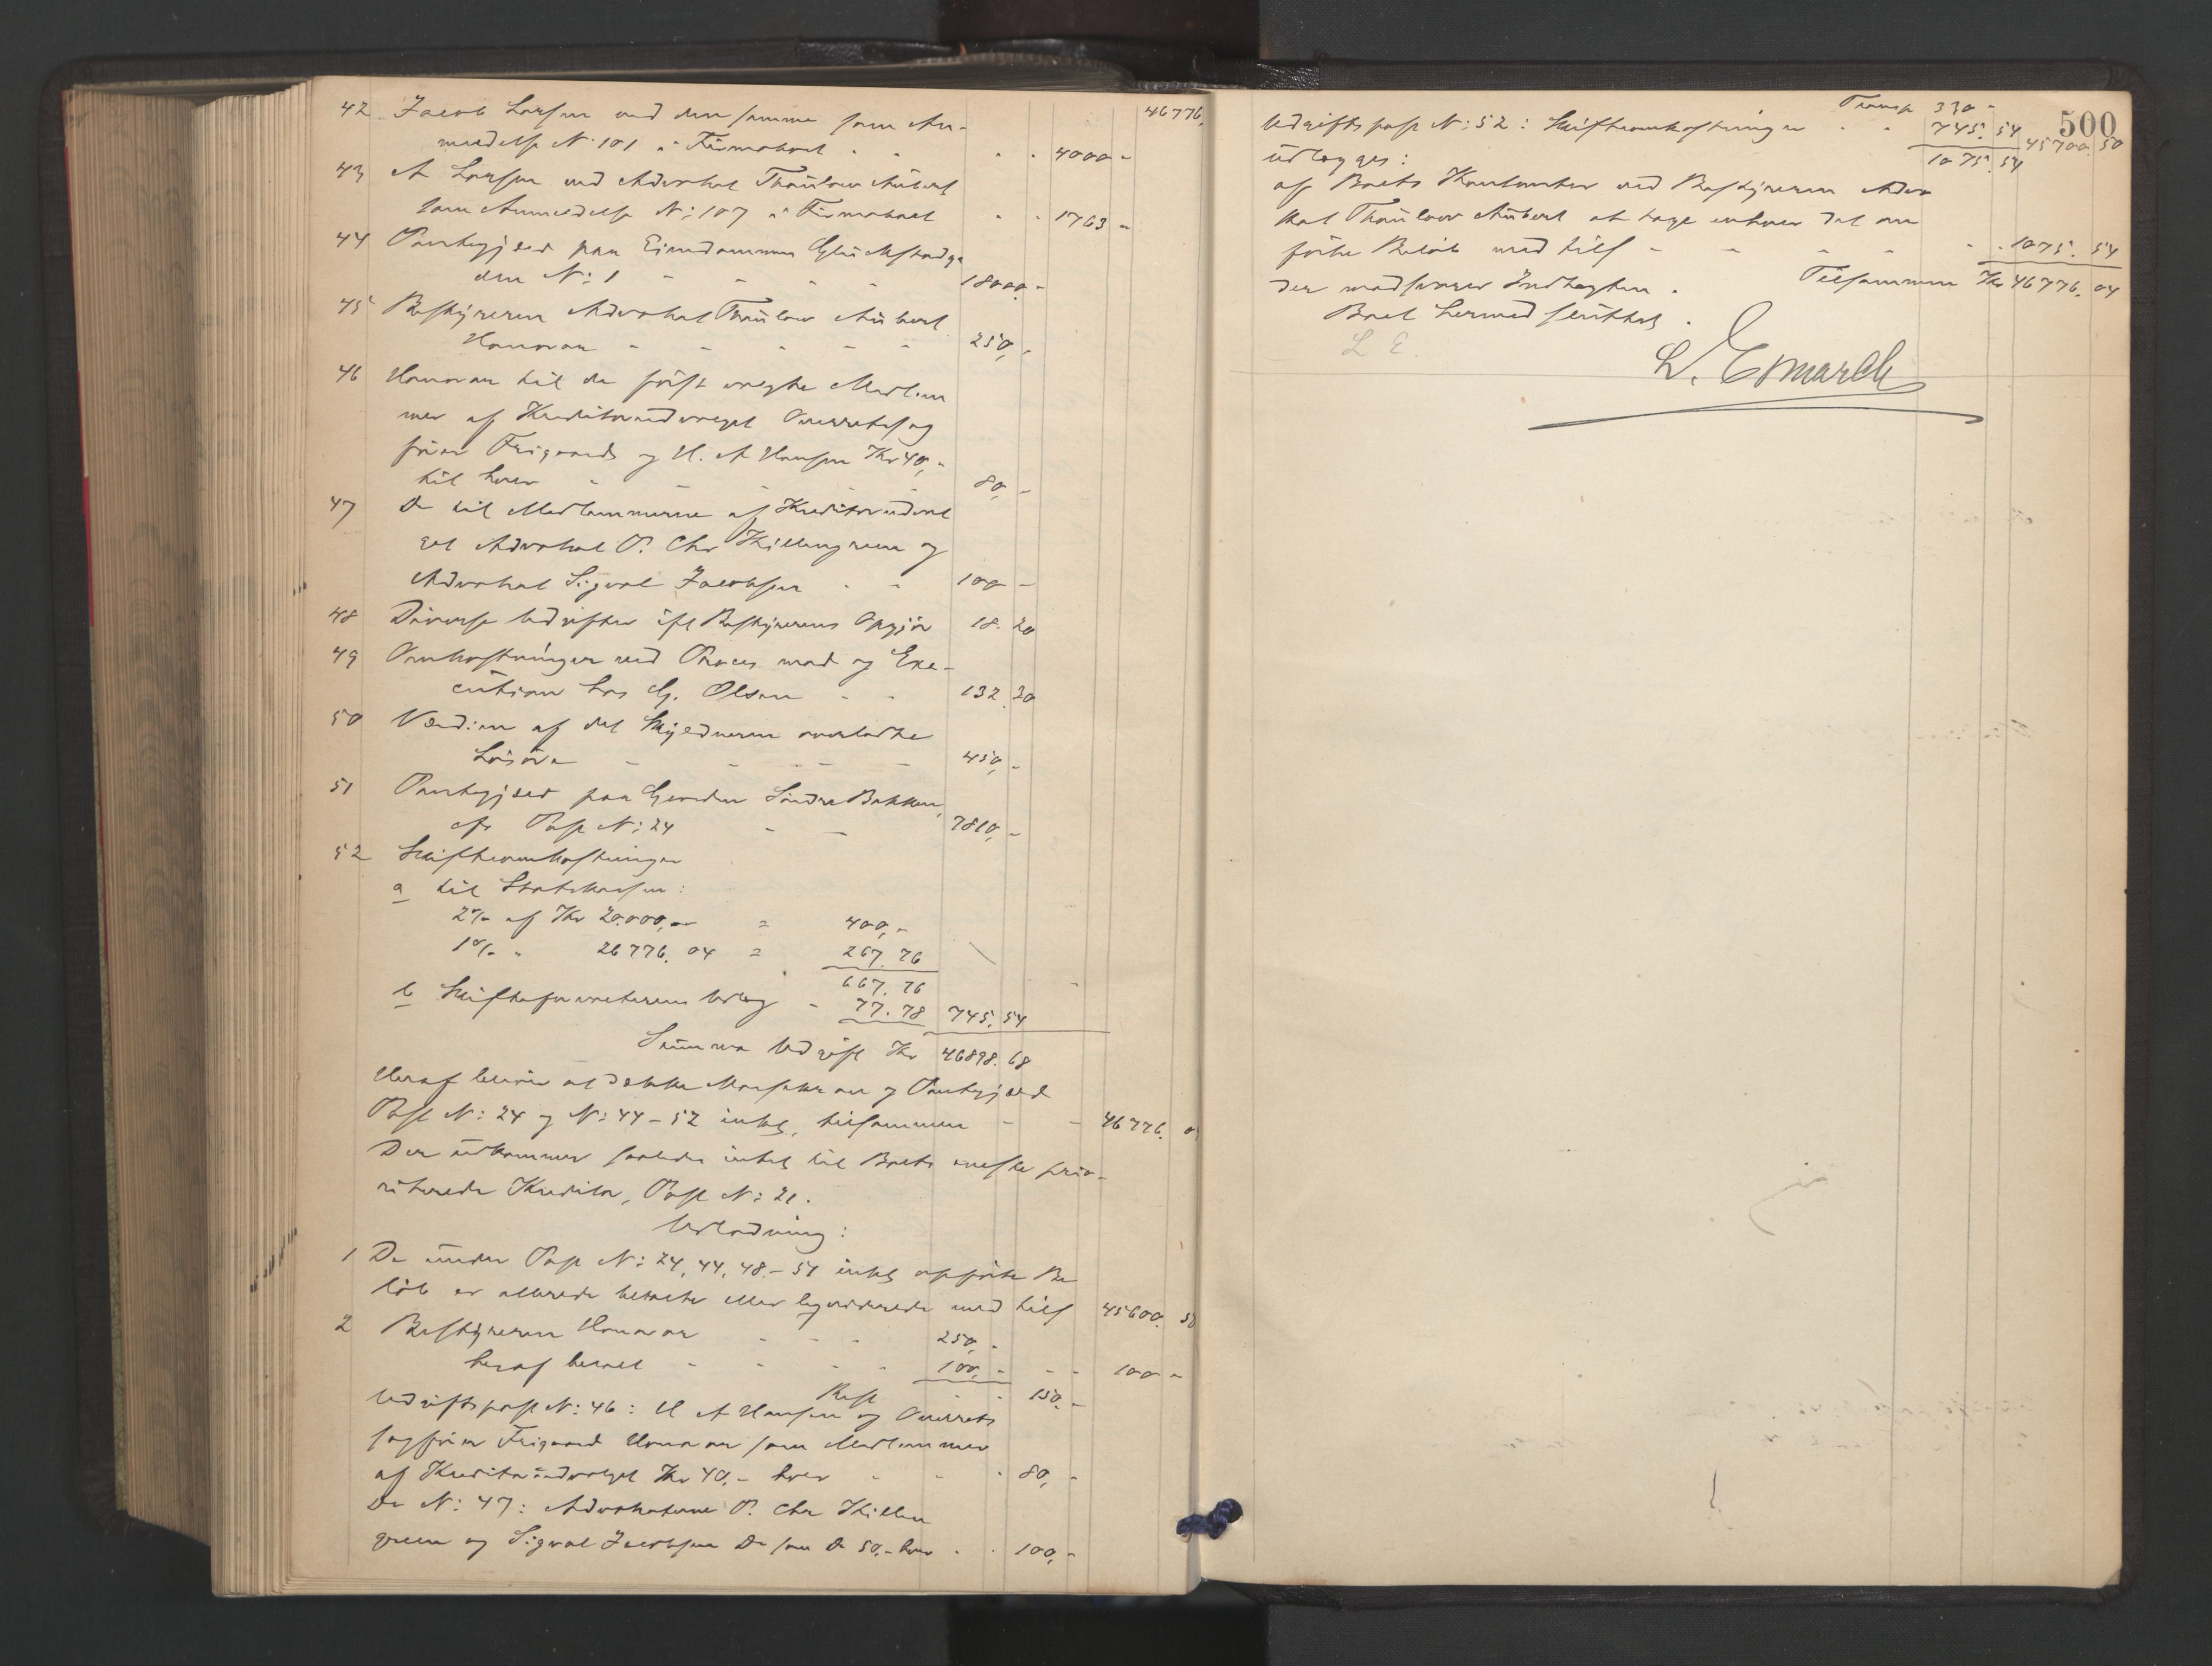 46776.
42. Jacob Larsen ved den samme som An-
meldelse N: 101 i Firmaboet - - - - 4000 -
43 A Larsen ved Advokat Thaulow Aubert
som Anmeldelse N: 107 i Firmaboet - - 1763 -
44 Pantegjæld paa Eiendommen Glückstadga
den N: 1 - - - - 18000. -
45 Bestyreren Advokat Thaulow Aubert
Honorar - - - - - 250, -
46 Honorar til de först valgte Medlem
mer af Kreditorudvalget Overretssag
förer Frigaard og H. A Hansen Kr 40, -
til hver - - - - - 80, -
47 Do til Medlemmerne af Kreditorudval
get Advokat P. Chr Killengreen og
Advokat Sigval Jacobsen - - 100 -
48 Diverse Udgifter ifl Bestyrerens Opgjör 18. 20
49 Omkostninger ved Proces mod og Exe-
cution hos G. Olsen - - 132. 30
50 Værdien af det Skyldneren overladte
Lösöre - - - - 450, -
51 Pantegjæld paa Gaarden Söndre Bakken,
cfr Post N: 24 - - 7810, -
52 Skifteomkostninger
a til Statskassen:
2% af Kr 20.000, - = 400, -
1% " 26776. 04 = 267. 76
667. 76
b Skifteforvalterens Udlæg - 77. 78 745. 54
Summa Udgift Kr 46898. 68
Heraf bliver at dække Massekrav og Pantegjæld
Post N: 24 og N: 44 - 52 inkl, tilsammen - - 46776. 0
Der udkommer saaledes intet til Boets prio-
riterede Kreditor, Post N: 21.
Udlodning:
1 De under Post N: 24, 44, 48 - 51 inkl opförte Be
löb er allerede betalte eller liqviderede med tils 45600. 50
2 Bestyrerens Honorar - - - 250, -
heraf betalt - - - - 100, - - - 100 -
Rest - - 150. -
Udgiftspost N: 46: H A Hansen og Overrets
sagförer Frigaard Honorar som Medlemmer
af Kreditorudvalget Kr 40, - hver - - - 80, -
Do N: 47: Advokaterne P. Chr Killen
green og Sigval Jacobsen Do som Do 50, - hver - - 100, -
500
Transp 330 - 45700. 50
Udgiftspost N: 52: Skifteomkostninger - - 745. 54
udlægges: 1075. 54
af Boets Kontanter ved Bestyreren Advo
kat Thaulow Aubert at tage enhver det an
förte Belöb med tils - - - - - - 1075. 54
der modsvarer Indtægten. Tilsammen Kr 46776. 04
Boet hermed sluttet.
L E.
L. Esmarch